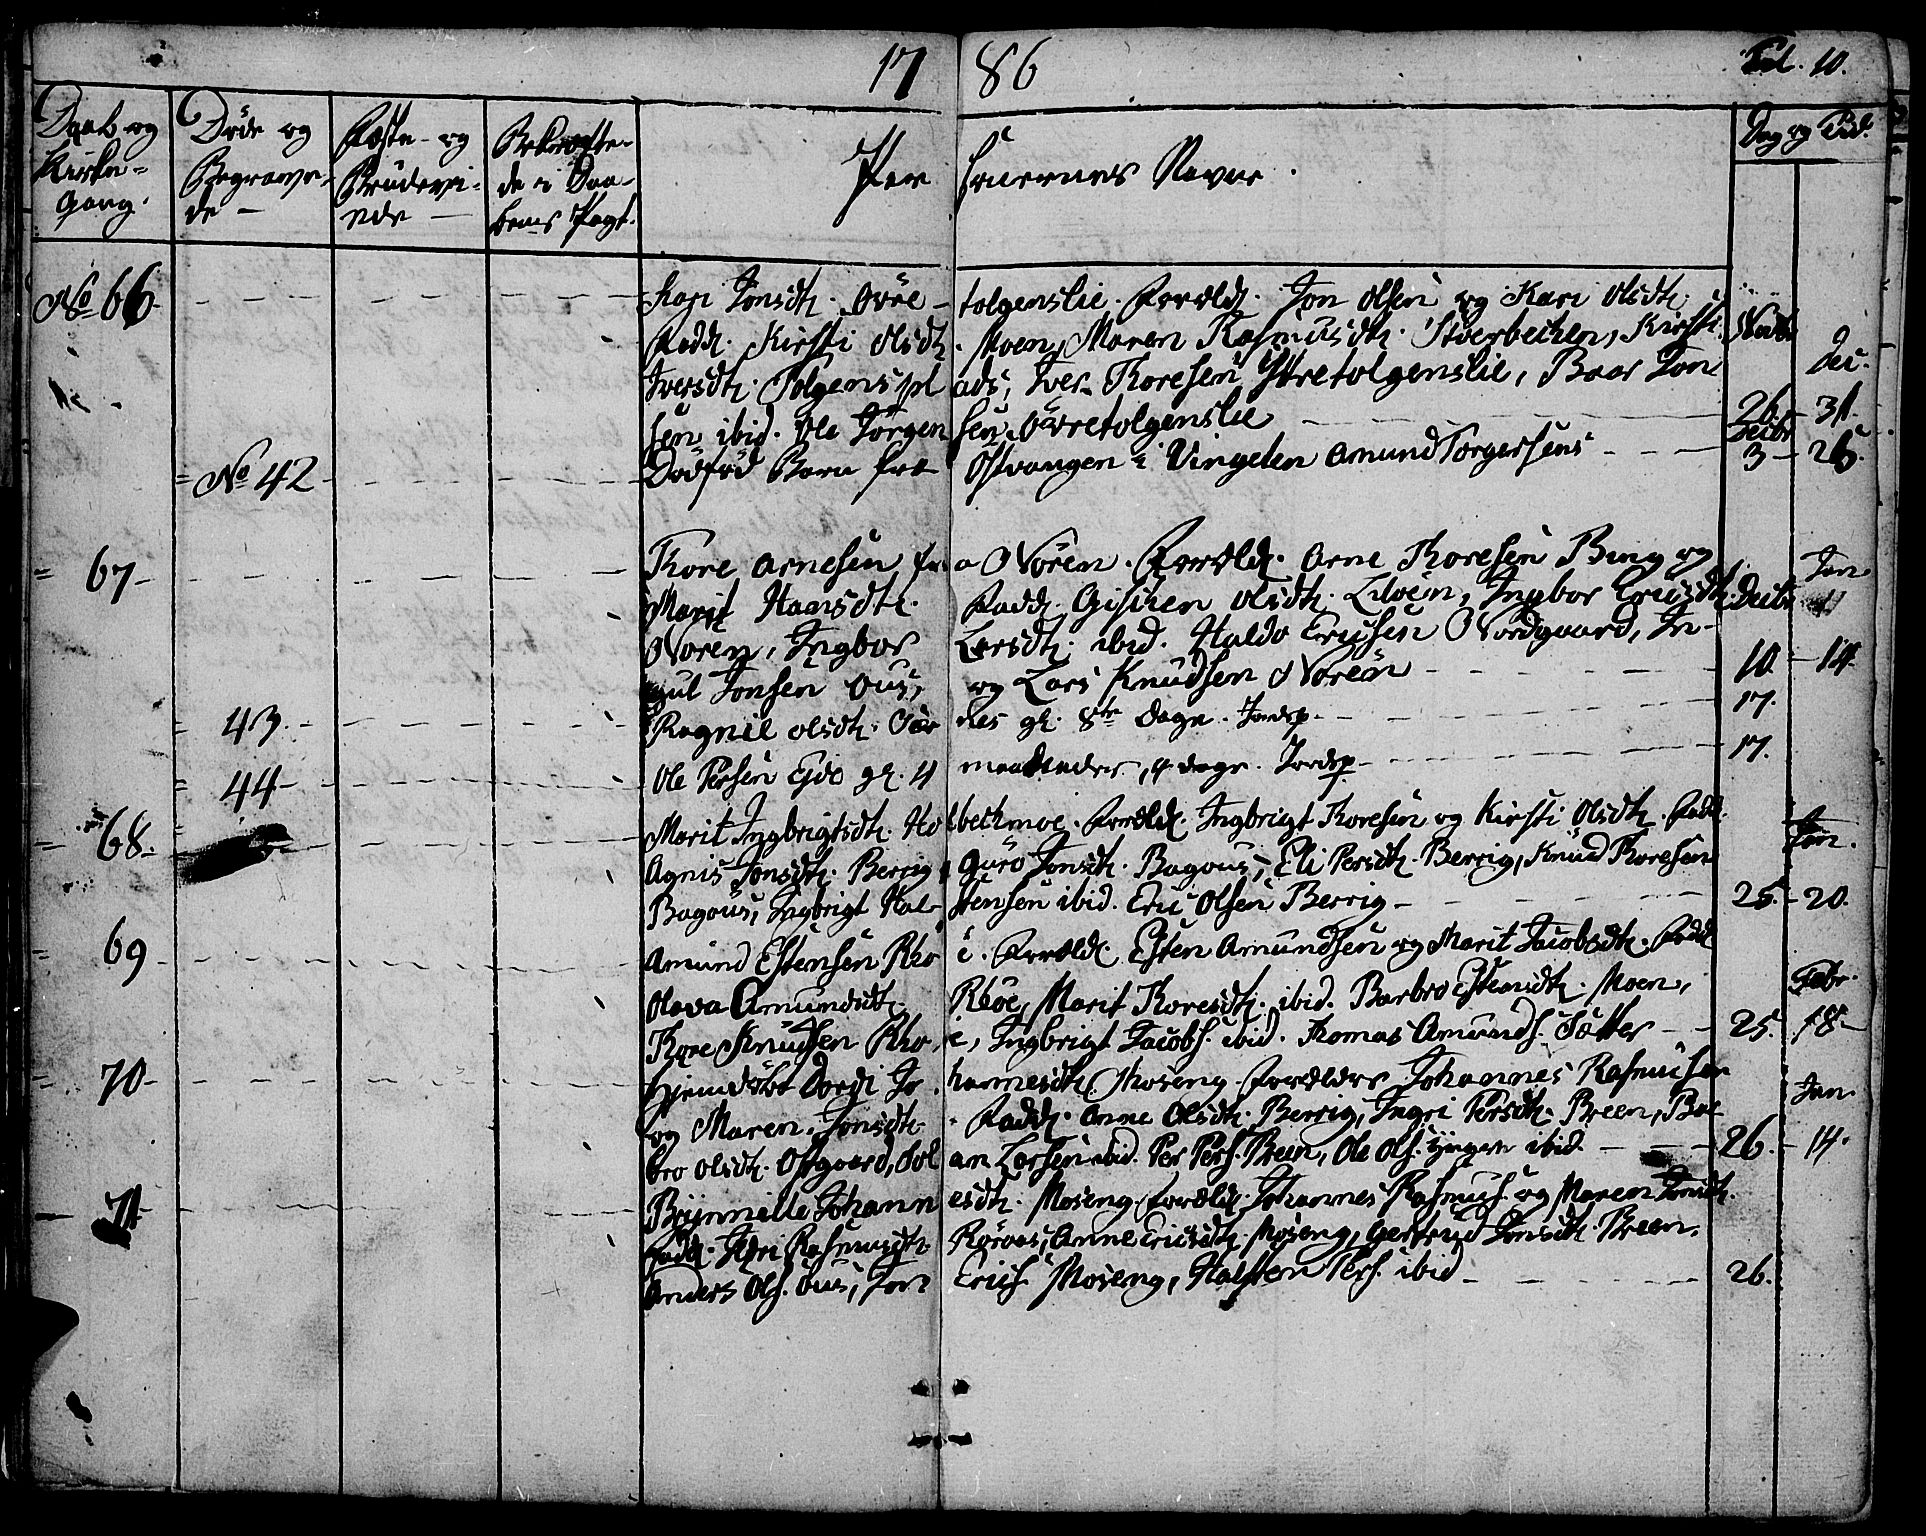 1786 Fol. 10.
Daab og Kirke-Gang.
Döde og Begrave-de
Fæste- og Brudevi-ede
Bekræfte-de i Daa-bens Pagt.
Personernes Navne.
Dag og Tid.
No 66. Kari Jonsdtr. Øvre-tolgenslie. Foreldr. Jon Olsen og Kari Olsdtr.
Fadd. Kirsti Olsdtr. Moen, Maren Rasmusdtr. Stoerbechen, Kirsti Novbr
Iversdtr. Tolgens plads, Iver Thoresen Ytretolgenslie, Baar Jon- Dec.
sen ibid. Ole Jörgensen Øvretolgenslie 26. 31.
No 42 Dödföd Barn fra Østvangen i Vingelen Amund Torgersens Decbr 3 - 26.
67 Thore Arnesen fra Noren. Foreldr. Arne Thoresen Bing og Jan.
Marit Hansdtr. Fadd. Gischen Olsdtr. Eloen, Ingbor Ericsdtr. Decbr
Noren, Ingbor Larsdtr. ibid. Haldo Ericsen Nordgaard, In-
gul Jonsen Ous, og Lars Knudsen Noren 10 - 14
43. Ragnil Olsdtr. gl. 8te Dage. Jordsp. 17.
44 Ole Persen Eide gl. 4 maaneder, 4 dage. Jordsp. 17.
68. Marit Ingbrigtsdtr. Holbechmoe. Foreldr. Ingbrigt Thoresen og Kirsti Olsdtr. Fadd.
Agnis Jonsdtr. Berrig, Guro Jonsdtr. Bagous, Eli Persdtr. Berrig, Knud Thoresen Jan.
Bagous, Ingbrigt Halstensen ibid. Eric Olsen Berrig 25. - 20.
69 Amund Estensen Rhoe. Foreldr. Esten Amundsen og Marit Jacobsdtr. Fadd.
Olava Amundsdtr. Rhoe, Marit Thoresdtr. ibid. Barbro Estensdtr. Moen, Febr.
Thore Knudsen Rhoe, Ingbrigt Jacobs. ibid. Thomas Amunds. Sætter 25. 18
70 Hjemdöbt Dordi Johannesdtr. Moseng. Forældre Johannes Rasmusen
og Maren Jonsdtr. Fadd. Anne Olsdtr. Berrig, Ingri Persdtr. Breen, Bar- Jan.
bro Olsdtr. Opgaard, Solan Larsen ibid. Per Pers. Breen, Ole Ols. yngere ibid. 26. 14.
71 Brynnille Johannesdtr. Moseng. Foreldr. Johannes Rasmus. og Maren Jonsdtr.
Fadd. Rasmusdtr. Röraas, Anne Ericsdtr. Moseng, Gertrud Jonsdtr. Breen,
Anders Ols. Ous, Jon Erics. Moseng, Halsten Pers. ibid 26.